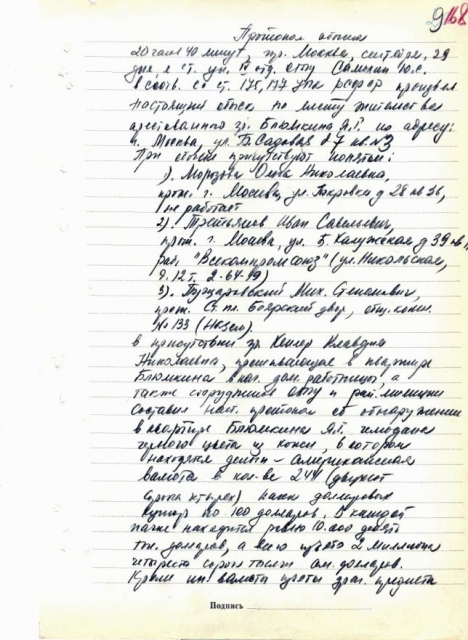 9 168
Протокол обыска
20 час 40 минут, гр. Москва, сентября, 29
дня, я ст. уп. IV отд. ОГПУ Самохин Ю.С.
в соотв. со ст. 175, 177 УПК РСФСР произвел
настоящий обыск по месту жительства
арестованного гр. Блюмкина Я.Г. по адресу:
г. Москва, ул. Б. Садовая д 7 кв. №3
При обыске присутствуют понятые:
1). Морозова Ольга Николаевна,
прож. г. Москва, ул. Покровка д 28 кв 36,
не работает
2). Третьяков Иван Савельевич,
прож. г. Москва, ул. Б. Калужская д 39 кв
раб. "Всекомпромсоюз" (ул. Никольская,
д. 12 т. 2-64-19)
3). Мих. Степанович,
прож. Ст. пл. Боярский двор, общ. комн.
№ 133 (НКЗем)
в присутствии гр. Келлер Клавдия
Николаевна, проживающая в квартире
Блюмкина в кач. дом. работницы, а
также сотрудников ОГПУ и раб. милиции
Составил наст. протокол об обнаружении
в квартире Блюмкина Я.Г. чемодана
цвета из кожи, в котором
находятся деньги - американская
валюта в кол-ве 244 (двухсот
сорока четырех) пачки долларовых
купюр по 100 долларов. В каждой
пачке находится ровно 10.000 десять
тыс. долларов, а всего 2 миллиона
четыреста сорок тысяч ам. долларов.
Кроме ин. валюты драг. предмета
Подпись